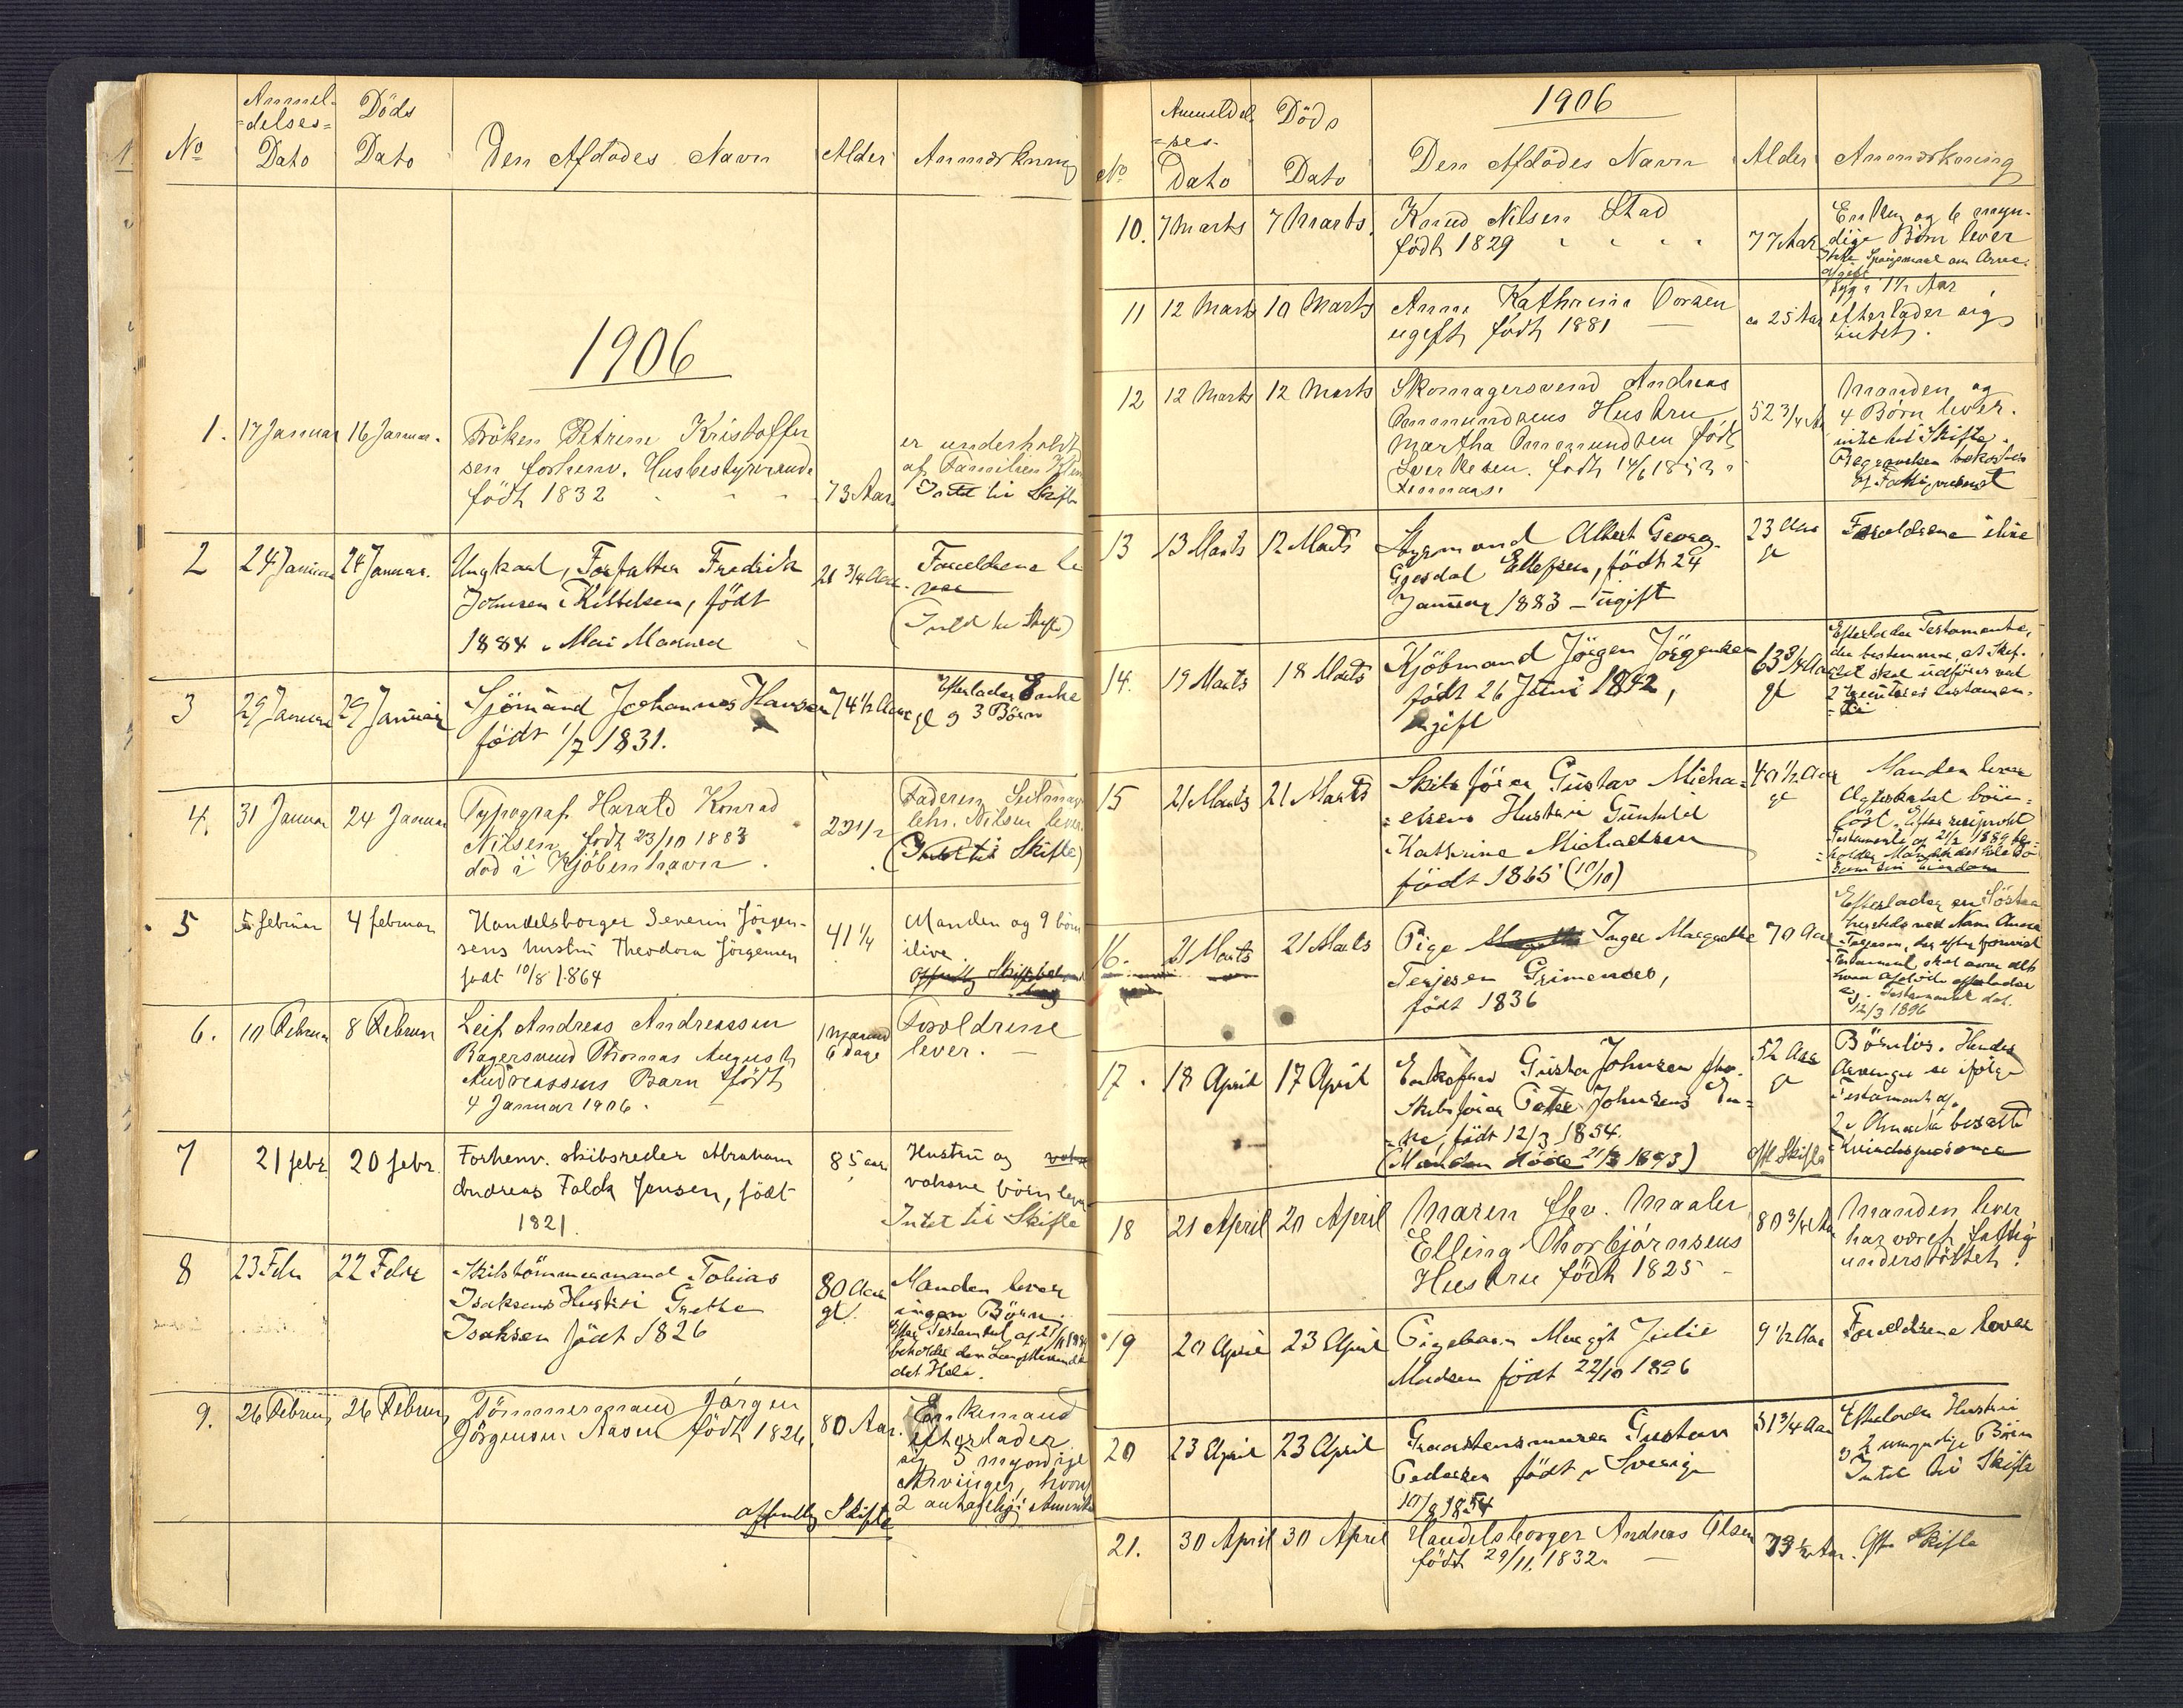 No
Anmel-
=delses=
Dato
Döds
Dato
Den Afdödes Navn
Alder
Anmærkning
1906
1. 17 Januar 16 Januar.
Fröken Petrine Kristoffer
sen forhenv. Husbestyrerinde
födt 1832
73 Aar
er underholdt
af Familien
Intet til Skifte
2 24 Januar 24 Januar.
Ungkarl, Forfatter Fredrik
Johnsen Kittelsen, födt
1884
21 3/4 Aar
Forældrene le
ver
(Intet til Skifte)
3 29 Januar 29 Januar
Sjömand Johannes Hansen
födt 1/7 1831.
74 1/2 Aar
gl
Efterlader Enke
og 3 Börn
4. 31 Januar 24 Januar
Typograf Harald Konrad
Nilsen födt 23/10 1883
död i Kjöbenhavn.
22 1/2
Faderen Seilmager
Nilsen lever.
(Intet til Skifte)
5 5 februar 4 februar
Handelsborger Severin Jörgen-
sens hustru Theodora Jörgensen
födt 10/8 1864
41 1/4
Manden og 9 börn
ilive.
6. 10 Februar 8 Februar
Leif Andreas Andreassen
Bagersvend Thomas August
Andreassens Barn födt
4 Januar 1906.
1 Maaned
6 dage
Foreldrene
lever.
7 21 febr. 20 febr.
Forhenv. skibsreder Abraham
Andreas Falck Jensen, födt
1821.
85 aar
Hustru og
voksne börn lever
Intet til Skifte
8 23 Febr 22 Febr
Skibstömmermand Tobias
Isaksens Hustru Grethe
Isaksen födt 1826
80 Aar
gl.
Manden lever
ingen Börn.
Efter Testament af
beholder den Længstlevende
det Hele.
9. 26 Februar 26 Februar
Tömmermand Jörgen
Jörgensen Aasen födt 1826
80 Aar.
Enkemand
efterlader
sig 5 myndige
Arvinger, hvoraf
2 antagelig i Amerika
offentlig Skifte
1906
No
Anmeldel-
=ses-
Dato
Döds
Dato
Den Afdödes Navn
Alder
Anmærkning
10. 7 Marts 7 Marts.
Knud Nilsen Stad
födt 1829
77 Aar
Enken og 6 myn-
dige Börn lever
Ikke Spörgsmaal om Arve-
afgift
11 12 Marts 10 Marts
Anne Kathrine Torsen
ugift, födt 1881
ca 25 Aar
Syg i 1 1/2 Aar
efterlader sig
intet.
12 12 Marts 12 Marts
Skomagersvend Andreas
Ommundsens Hustru
Martha Ommundsen födt
födt 14/6 1853
52 3/4 Aar
Manden og
4 Börn lever.
intet til Skifte.
Begravelsen bekostes
af Fattigvæsenet
13 13 Marts 12 Marts
Styrmand Albert Georg
Gjesdal Ellefsen, födt 24
Januar 1883 - ugift
23 Aar
gl
Forældrene ilive
14. 19 Marts 18 Marts
Kjöbmand Jörgen Jörgensen
födt 26 Juni 1842,
ugift
63 3/4 Aar
gl
Efterlader Testamente,
der bestemmer, at Skif-
tet skal udföres ved
2
15 21 Marts 21 Marts
Skibsförer Gustav Micha-
=elsens Hustru Gunhild
Kathrine Michaelsen
födt 1865 (10/10)
40 1/2 Aar
gl
Manden lever
Ægteskabet börn-
löst. Efter resiprokt
Testamente af 21/2 1889 be-
=holder Manden det Hele Bo
som sin Eiendom
16. 21 Marts 21 Marts
Pige Inger Margrethe
Terjesen Grimenes,
födt 1836
70 Aar
Efterlader en Söster
ved Navn Anna
Terjesen, der efter
Testament skal arve alt
hvad afdöde efterlader
sig. Testamentet dat.
12/3 1896
17. 18 April 17 April
Enkefru Gusta Johnsen fhv.
Skibsförer Peter Johnsens En-
=ke, födt 12/3 1854.
(Manden döde 21/3 1893)
52 Aar
gl
offl Skifte
Börnlös. Hendes
Arvinger er ifölge
Testament af
2 i Amerika bosatte
Kvindespersoner
18 21 April 20 April
Maren fhv. Maaler
Elling Thorbjörnsens
Hustru födt 1825 -
80 3/4 Aar
Manden lever
har været fattig
understöttet.
19 20 April 23 April
Pigebarn Margit Julie
Madsen födt 22/10 1896
9 1/2 Aar
Forældrene lever
20 23 April 23 April
Graastensmurer Gustav
Pedersen födt i Sverige
10/8 1854
51 3/4 Aar
Efterlader Hustru
og 2 umyndige Börn
Intet til Skifte
21. 30 April 30 April
Handelsborger Andreas Olsen
födt 29/11 1832.
73 1/2 Aar.
Off. Skifte